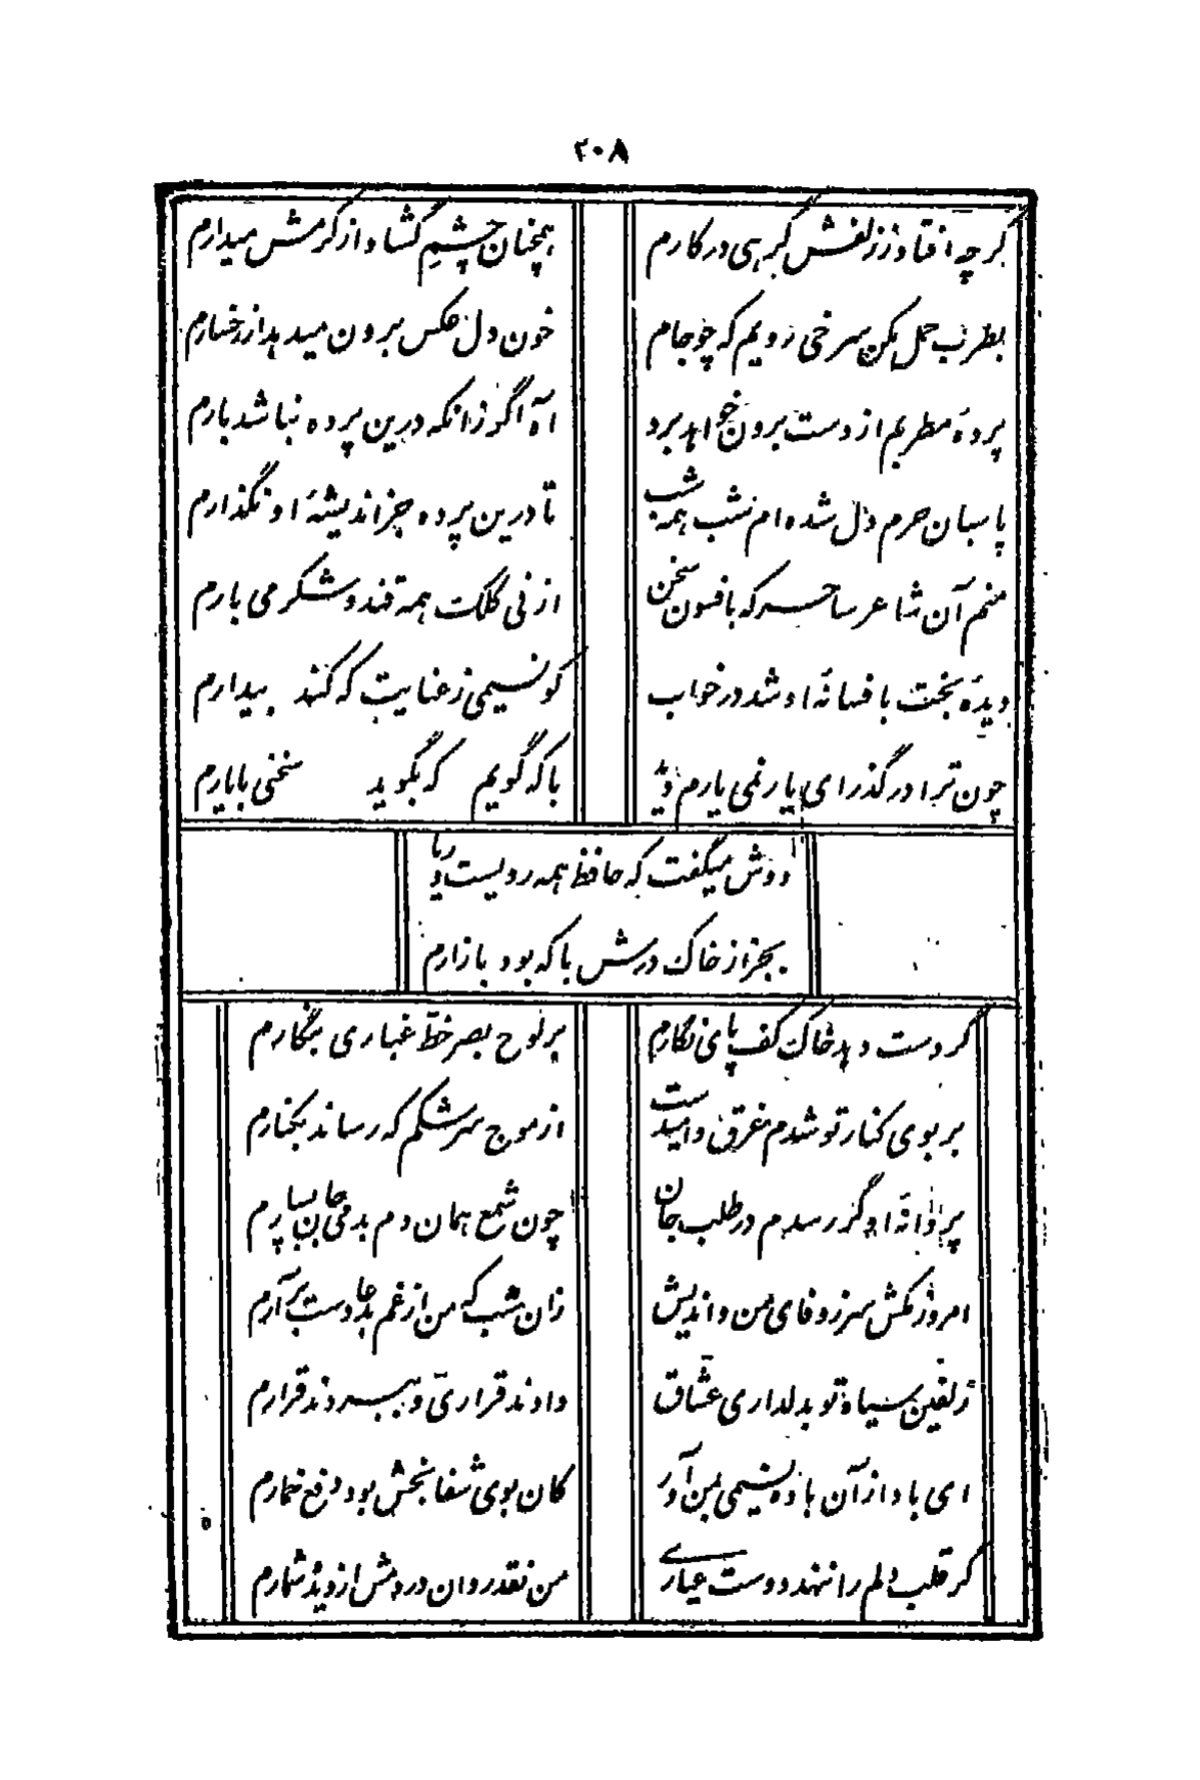 ۲۰۸
گرچه افتاد ز زلفش گرهی در کارم
همچنان چشم گشاد از کرمش میدارم
بطرب حمل مکن سرخی رویم که چو جام
خون دل عکس برون میدهد از رخسارم
پردهٔ مطربم از دست برون خواهد برد
آه اگر زانکه درین پرده نباشد بارم
پاسبان حرم دل شده ام شب همه شب
تا درین پرده جز اندیشهٔ او نگذارم
منم آن شاعر ساحر که بافسون سخن
از نی کلک همه قند و شکر می بارم
دیدهٔ بخت بافسانهٔ او شد در خواب
کو نسیمی ز عنایت که کند بیدارم
چون ترا در گذر ای یار نمی یارم دید
با که گویم که بگوید سخنی با یارم
دوش میگفت که حافظ همه رویست و ریا
بجز از خاک درش با که بود بازارم
گر دست دهد خاک کف پای نگارم
بر لوح بصر خطّ غباری بنگارم
بر بوی کنار تو شدم غرق و امیدست
از موج سرشکم که رساند بکنارم
پروانهٔ او گر رسدم در طلب جان
چون شمع همان دم بدمی جان بسپارم
امروز مکش سر ز وفای من و اندیش
زان شب که من از غم بدعا دست برآرم
زلفین سیاه تو بدلداری عشّاق
دادند قراری و ببردند قرارم
ای باد از آن باده نسیمی بمن آور
کان بوی شفا بخش بود دفع خمارم
گر قلب دلم را ننهد دوست عیاری
من نقد روان در دمش از دیده شمارم